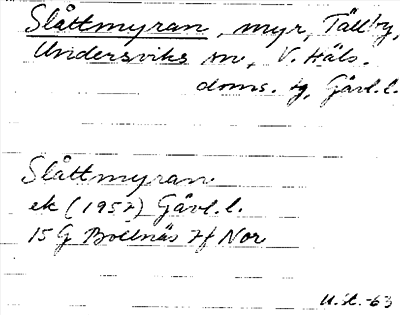 Slåttmyran, myr, Tällby,
Undersviks sn, V. Häls.
doms. tg, Gävl.l.
Slåttmyran
ek (1957) Gävl.l.
15 G Bollnäs 7f Nor
U.St. -63